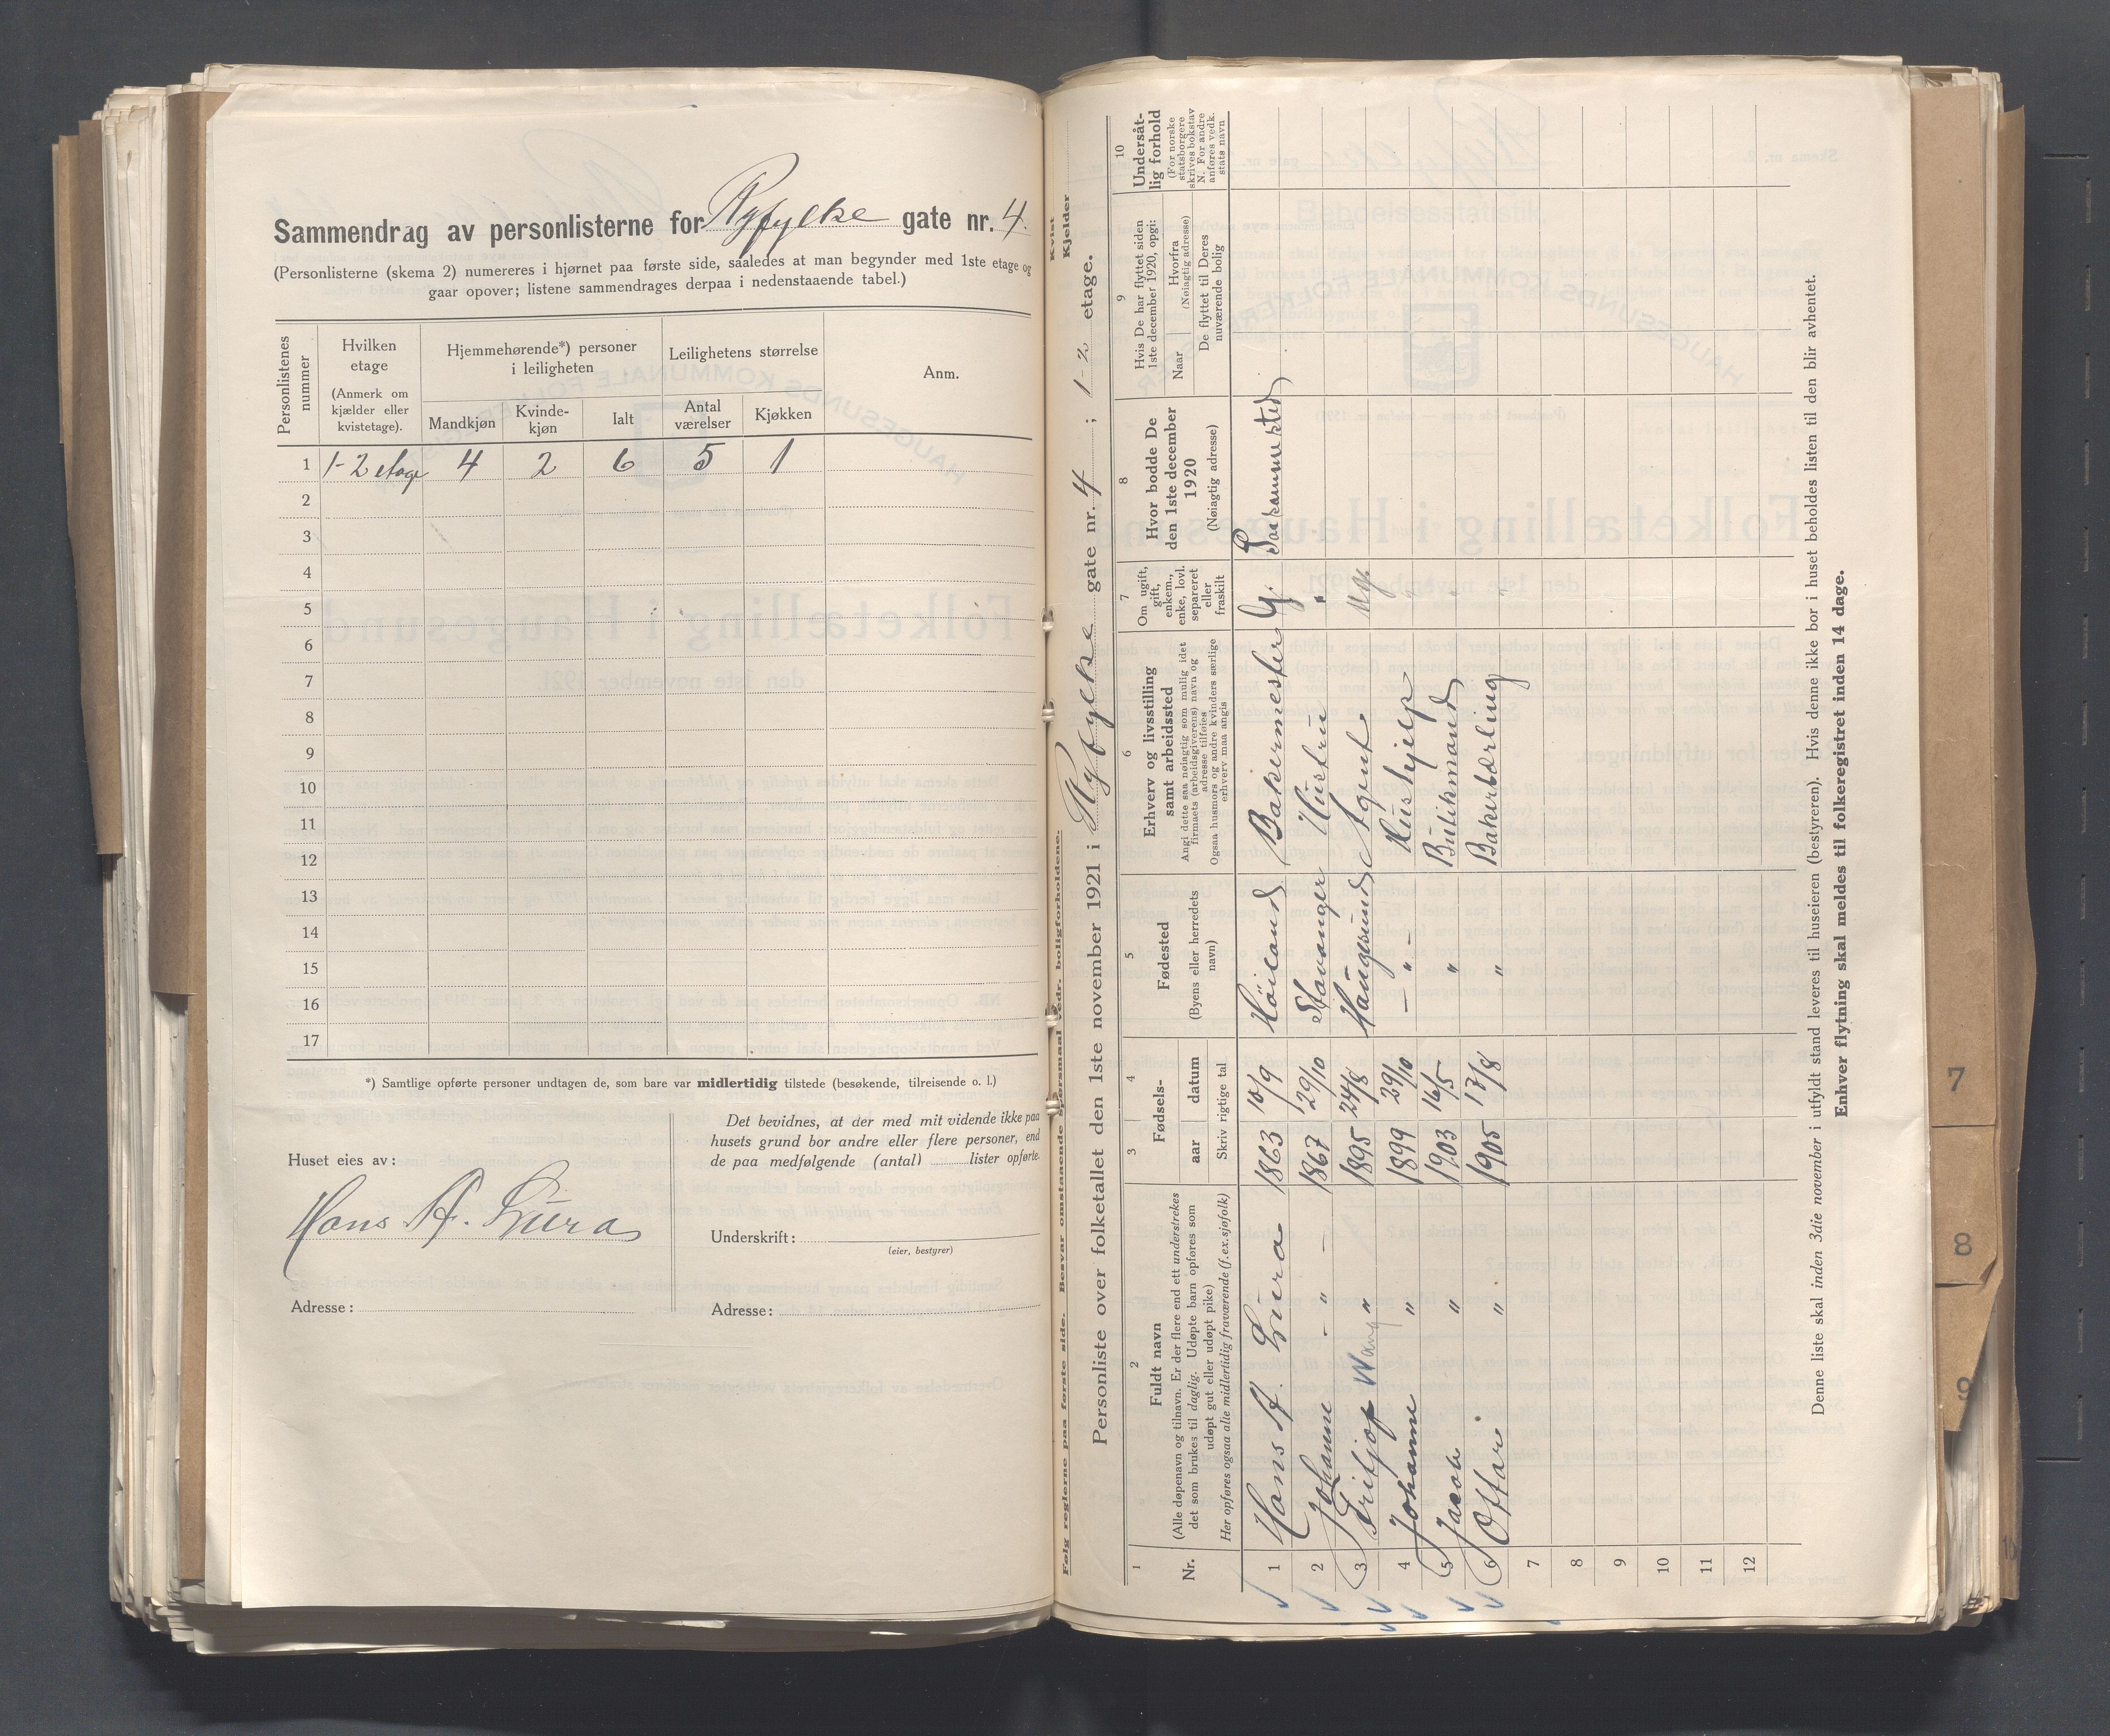 Sammendrag av personlisterne for Ryfylke gate nr. 4.
(Personlisterne (skema 2) numereres i hjørnet paa første side, saaledes at man begynder med 1ste etage og
gaar opover; listene sammendrages derpaa i nedenstaaende tabel.)
Personlistenes nummer
Hvilken etage (Anmerk om kjælder eller kvistetage).
Hjemmehørende*) personer i leiligheten
Mandkjøn
Kvindekjøn
Ialt
Leilighetens størrelse
Antal værelser
Kjøkken
Anm.
1 1-2 etage 4 2 6 5 1
2
3
4
5
6
7
8
9
10
11
12
13
14
15
16
17
*) Samtlige opførte personer undtagen de, som bare var midlertidig tilstede (besøkende, tilreisende o. l.)
Huset eies av:
Hans A. Lura
Adresse:
Det bevidnes, at der med mit vidende ikke paa
husets grund bor andre eller flere personer, end
de paa medfølgende (antal) lister opførte.
Underskrift:
(eier, bestyrer)
Adresse:
Følg reglerne paa første side. Besvar omstaaende spørsmaal vedr. boligforholdene.
Kvist
Kjelder
Personliste over folketallet den 1ste november 1921 i Ryfylke gate nr. 4 ; 1-2 etage.
1
Nr.
2
Fuldt navn
(Alle døpenavn og tilnavn. Er der flere end ett understrekes
det som brukes til daglig. Udøpte barn opføres som
udøpt gut eller udøpt pike)
Her opføres ogsaa alle midlertidig fraværende (f.ex. sjøfolk)
3 4
Fødsels-
aar datum
Skriv rigtige tal
5
Fødested
(Byens eller herredets
navn)
6
Erhverv og livsstilling
samt arbeidssted
Angi dette saa nøiagtig som mulig idet
firmaets (arbeidsgiverens) navn og
adresse tilføies
Ogsaa husmors og andre kvinders særlige
erhverv maa angis
7
Om ugift,
gift,
enkem.,
enke, lovl.
separeret
eller
fraskilt
8
Hvor bodde De
den 1ste december
1920
(Nøiagtig adresse)
9
Hvis De har flyttet siden
1ste december 1920, opgi:
Naar
Hvorfra
(Nøiagtig adresse)
De flyttet til Deres
nuværende bolig
10
Undersåt-
lig forhold
(For norske
statsborgere
skrives bokstav
N. For andre
anføres vedk.
stats navn
1 Hans A. Lura 1863 10/9 Höiland Bakermester G. Paasammested
2 Johanne - " - 1867 29/10 Stavanger Hustru "
3 Fritjof Wang " 1895 24/8 Haugesund Agent Ug.
4 Johanne " 1899 29/10 - " - Hushjelp "
5 Jacob " 1903 16/5 " Butikmand "
6 Ottar " 1905 13/8 " Bakerlærling "
7
8
9
10
11
12
Denne liste skal inden 3die november i utfyldt stand leveres til huseieren (bestyreren). Hvis denne ikke bor i huset beholdes listen til den blir avhentet.
Enhver flytning skal meldes til folkeregistret inden 14 dage.
7
8
9
10